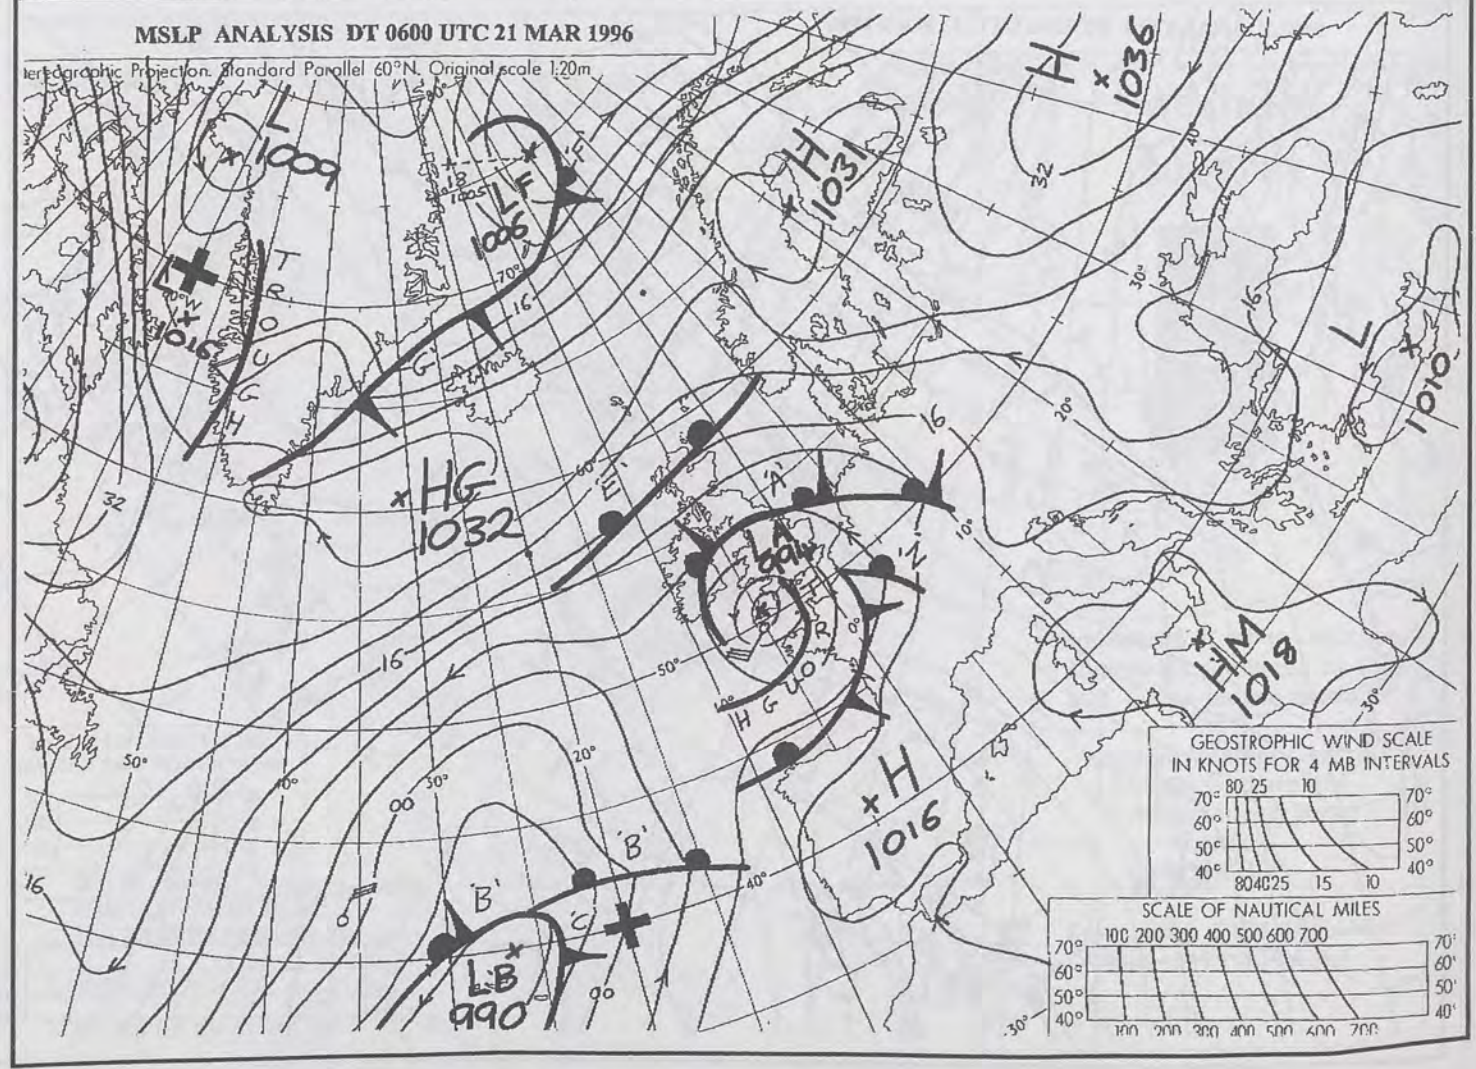 MSLP ANALYSIS DT 0600 UTC 21 MAR 1996
tereographic Projection. Standard Parallel 60°N. Original scale 1:20m
L
1009
H
1036
H
1031
32
'F'
LF
1006
80°
40°
70°
16
30°
16
L
1016
T
R
O
U
G
H
'G'
L
1010
20°
16
60°
'E'
'A'
32
HG
1032
10°
LA
994
'N'
0°
R
O
U
G
H
50°
16
10°
HM
1018
30°
50°
40°
30°
20°
00
H
1016
'B'
16
40°
'B'
'C'
LB
990
00
30°
GEOSTROPHIC WIND SCALE
IN KNOTS FOR 4 MB INTERVALS
80 25 10
70° 70°
60° 60°
50° 50°
40° 40°
80 40 25 15 10
SCALE OF NAUTICAL MILES
100 200 300 400 500 600 700
70° 70°
60° 60°
50° 50°
40° 40°
100 200 300 400 500 600 700